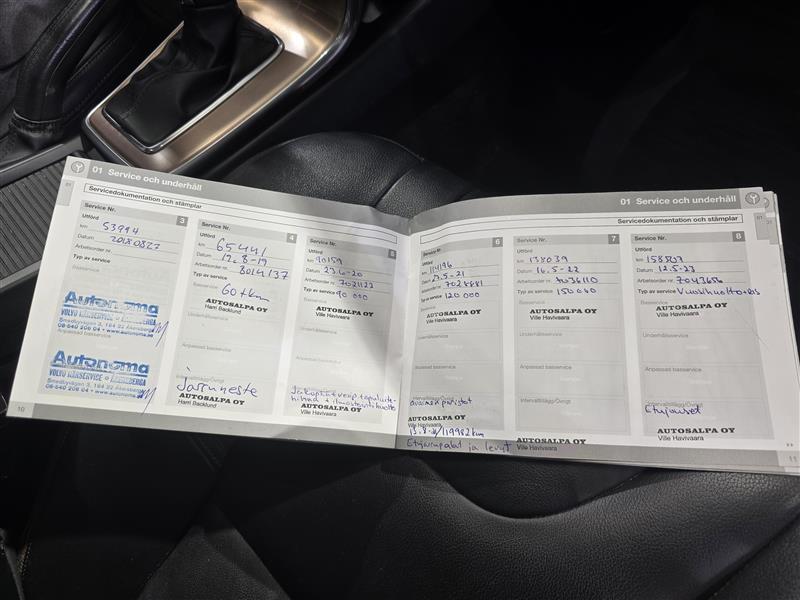 01 Service och underhåll
Servicedokumentation och stämplar
Service Nr. 3
Utförd
km 53994
Datum 20180827
Arbetsorder nr.
Typ av service
Basservice
Autonoma
VOLVO BÄRSERVICE - ÅKERSBERGA
08-540 206 04 • www.autonoma.se
Anpassad basservice
Autonoma
08-540 206 04 • www.autonoma.se
10
Service Nr. 4
Utförd
km 65441
Datum 12.8-19
Arbetsorder nr. 8014137
Typ av service
60 tkm
AUTOSALPA OY
Harri Backlund
Underhållsservice
Anpassad basservice
Jarruneste
AUTOSALPA OY
Harri Backlund
Service Nr. 5
Utförd
km 90159
Datum 23.6-20
Arbetsorder nr. 7021122
Typ av service 90 000
Basservice
AUTOSALPA OY
Ville Havivaara
Underhållsservice
Anpassad basservice
AUTOSALPA OY
Ville Havivaara
01 Service och underhåll
Servicedokumentation och stämplar
Service Nr. 6
Utförd
km 114196
Datum
Arbetsorder nr.
Typ av service 120 000
Basservice
AUTOSALPA OY
Ville Havivaara
Underhållsservice
Anpassad basservice
AUTOSALPA OY
Ville Havivaara
119982 km
Etujarrupalat ja levyt
Service Nr. 7
Utförd
km 138039
Datum 16.5-22
Arbetsorder nr. 7036110
Typ av service 150 000
Basservice
AUTOSALPA OY
Ville Havivaara
Underhållsservice
Anpassad basservice
Intervalltillägg/Övrigt
AUTOSALPA OY
Ville Havivaara
Service Nr. 8
Utförd
km 158509
Datum 12.5-23
Arbetsorder nr. 7043656
Typ av service Vuosihuolto
Basservice
AUTOSALPA OY
Ville Havivaara
Underhållsservice
Anpassad basservice
Intervalltillägg/Övrigt
Etujouset
AUTOSALPA OY
Ville Havivaara
11